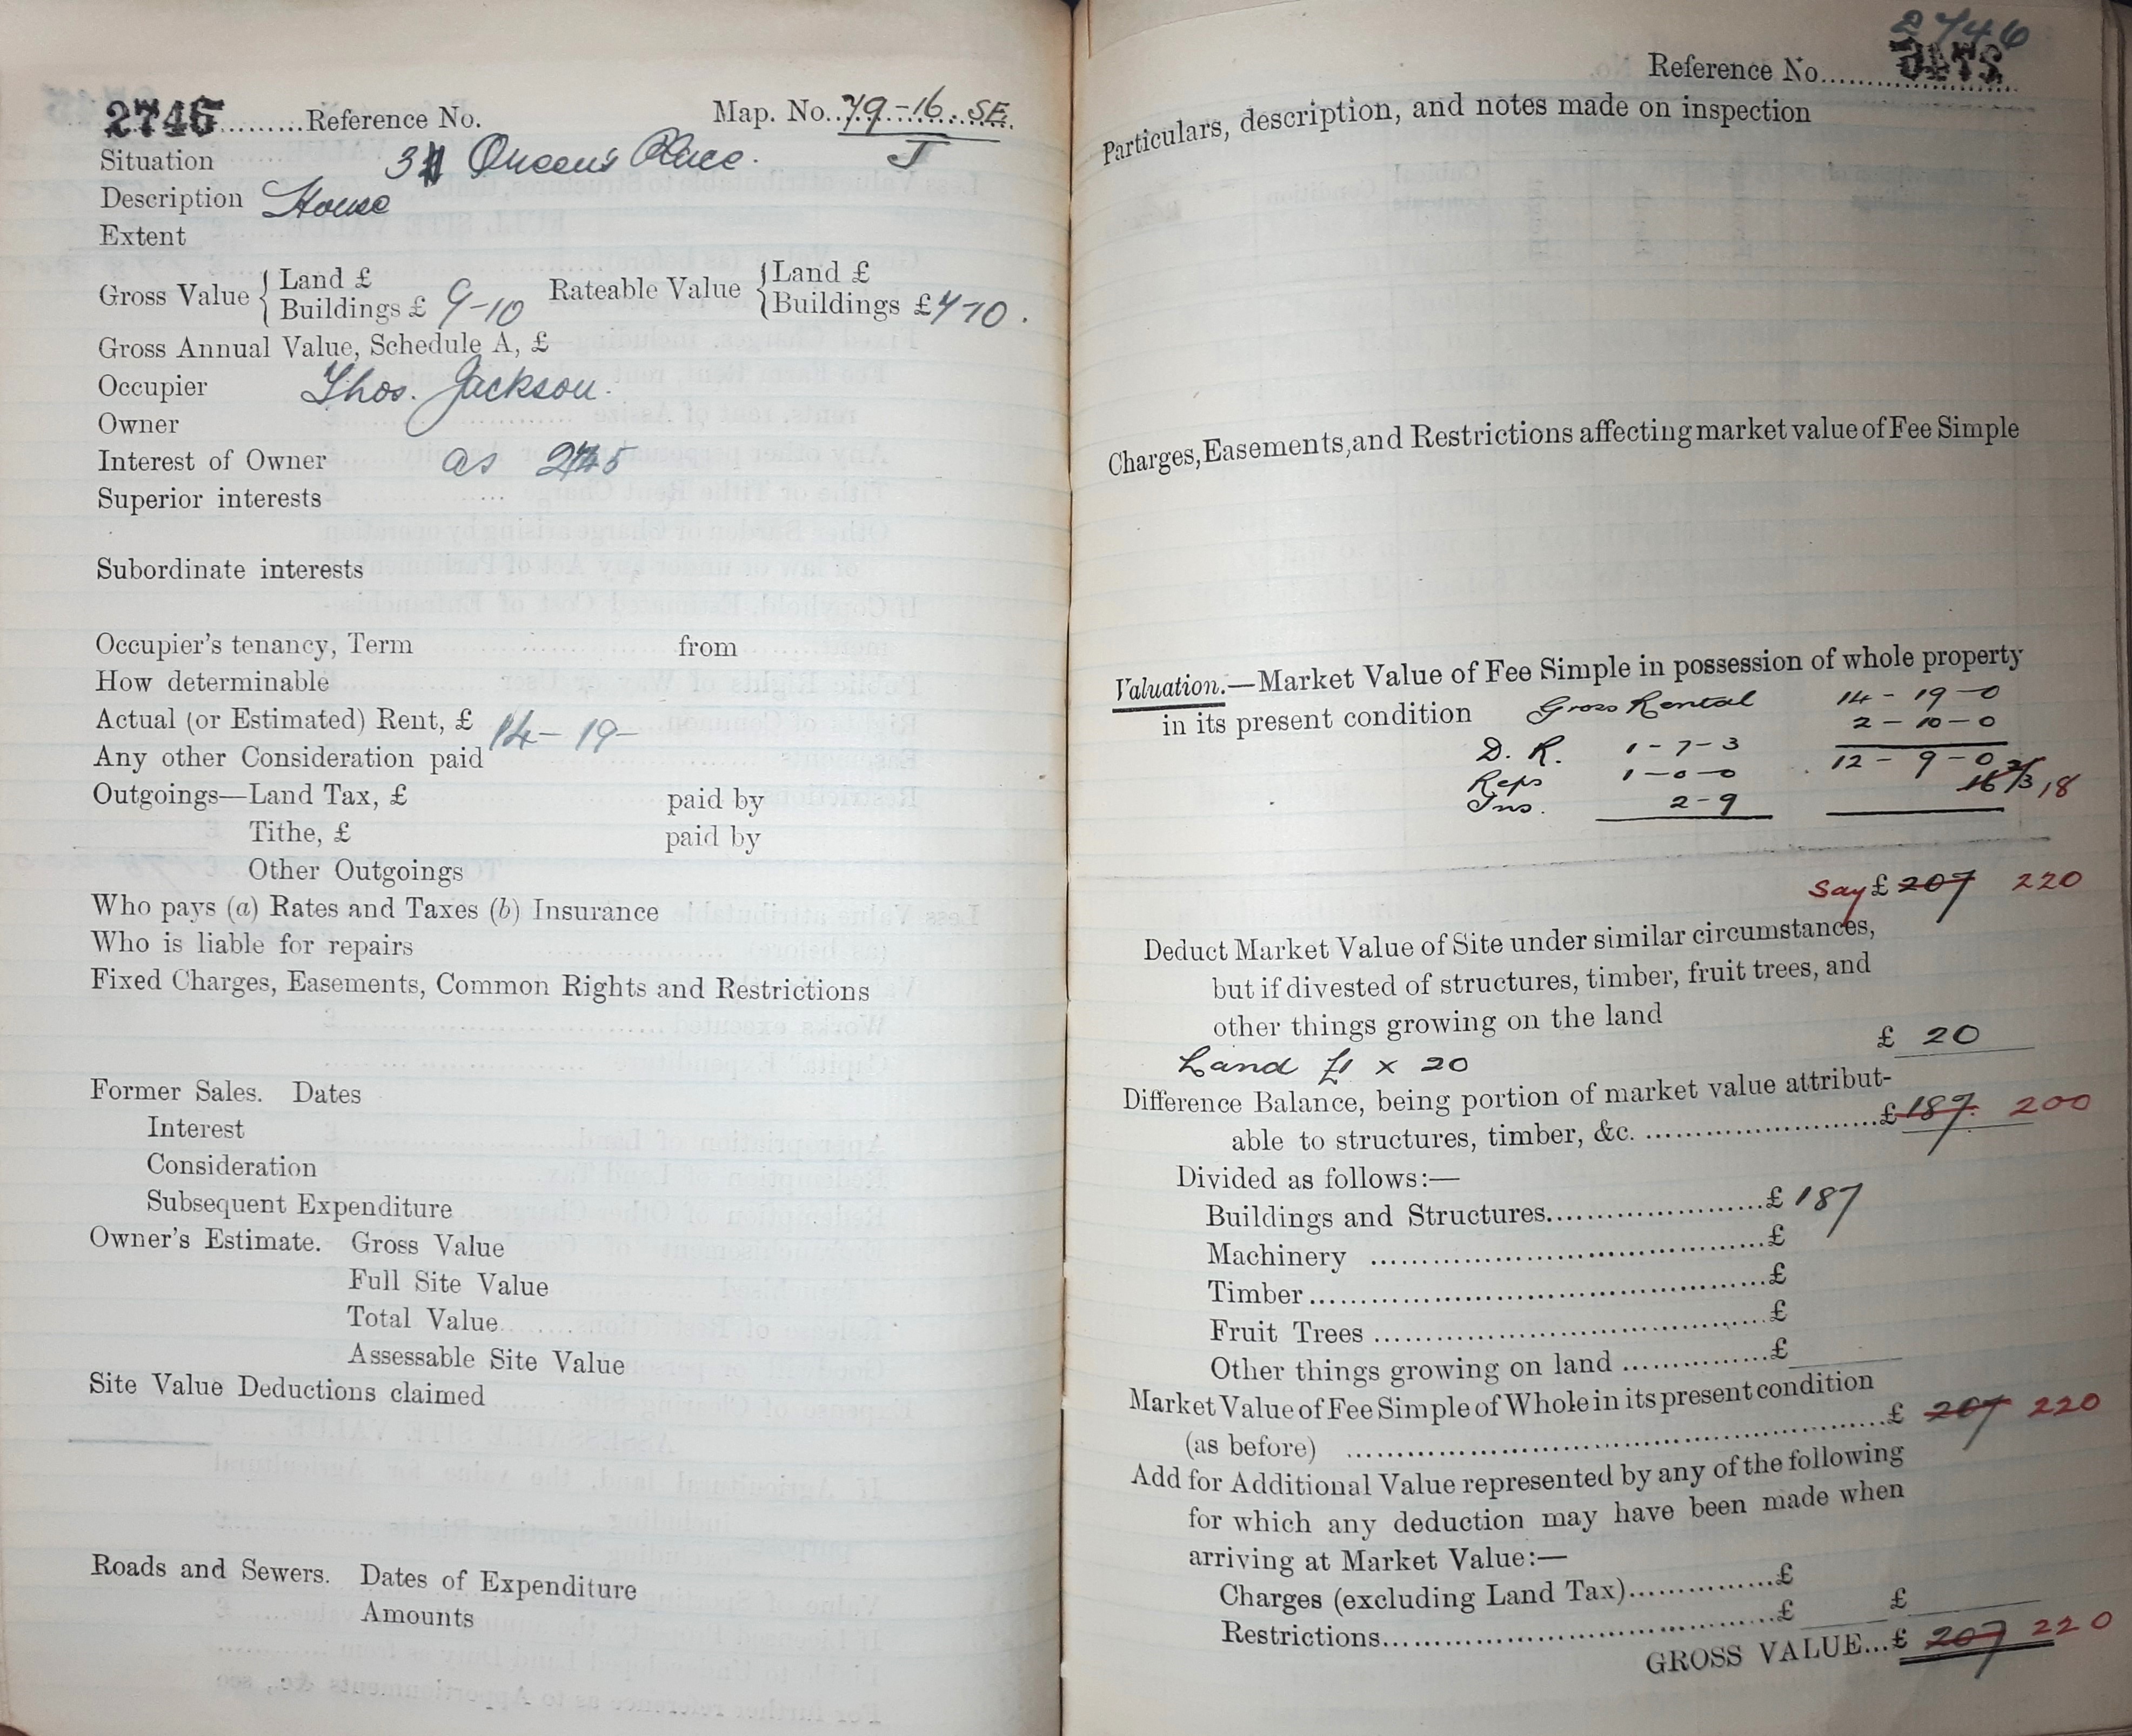 2746 ......... Reference No. Map. No. 79-16. SE.
J
Situation 3 Queen's Place.
Description House
Extent
Gross Value { Land £ Rateable Value { Land £
Buildings £ 9-10 Buildings £ 7-10.
Gross Annual Value, Schedule A, £
Occupier Thos. Jackson.
Owner
Interest of Owner as 2745
Superior interests
Subordinate interests
Occupier's tenancy, Term from
How determinable
Actual (or Estimated) Rent, £ 14-19-
Any other Consideration paid
Outgoings—Land Tax, £ paid by
Tithe, £ paid by
Other Outgoings
Who pays (a) Rates and Taxes (b) Insurance
Who is liable for repairs
Fixed Charges, Easements, Common Rights and Restrictions
Former Sales. Dates
Interest
Consideration
Subsequent Expenditure
Owner's Estimate. Gross Value
Full Site Value
Total Value
Assessable Site Value
Site Value Deductions claimed
Roads and Sewers. Dates of Expenditure
Amounts
2746
Reference No.
Particulars, description, and notes made on inspection
Charges, Easements, and Restrictions affecting market value of Fee Simple
Valuation.—Market Value of Fee Simple in possession of whole property
in its present condition Gross Rental 14-19-0
2-10-0
D. R. 1-7-3 12-9-0
Reps 1-0-0 18
Ins. 2-9
Say £ 207 220
Deduct Market Value of Site under similar circumstances,
but if divested of structures, timber, fruit trees, and
other things growing on the land
£ 20
Land £1 x 20
Difference Balance, being portion of market value attribut-
able to structures, timber, &c. .......................... £ 187 200
Divided as follows:—
Buildings and Structures........................£ 187
Machinery ..........................................£
Timber................................................£
Fruit Trees ..........................................£
Other things growing on land ................£
Market Value of Fee Simple of Whole in its present condition
(as before) ..........................................................£ 207 220
Add for Additional Value represented by any of the following
for which any deduction may have been made when
arriving at Market Value:—
Charges (excluding Land Tax)................£
Restrictions..........................................£ £
GROSS VALUE...£ 207 220